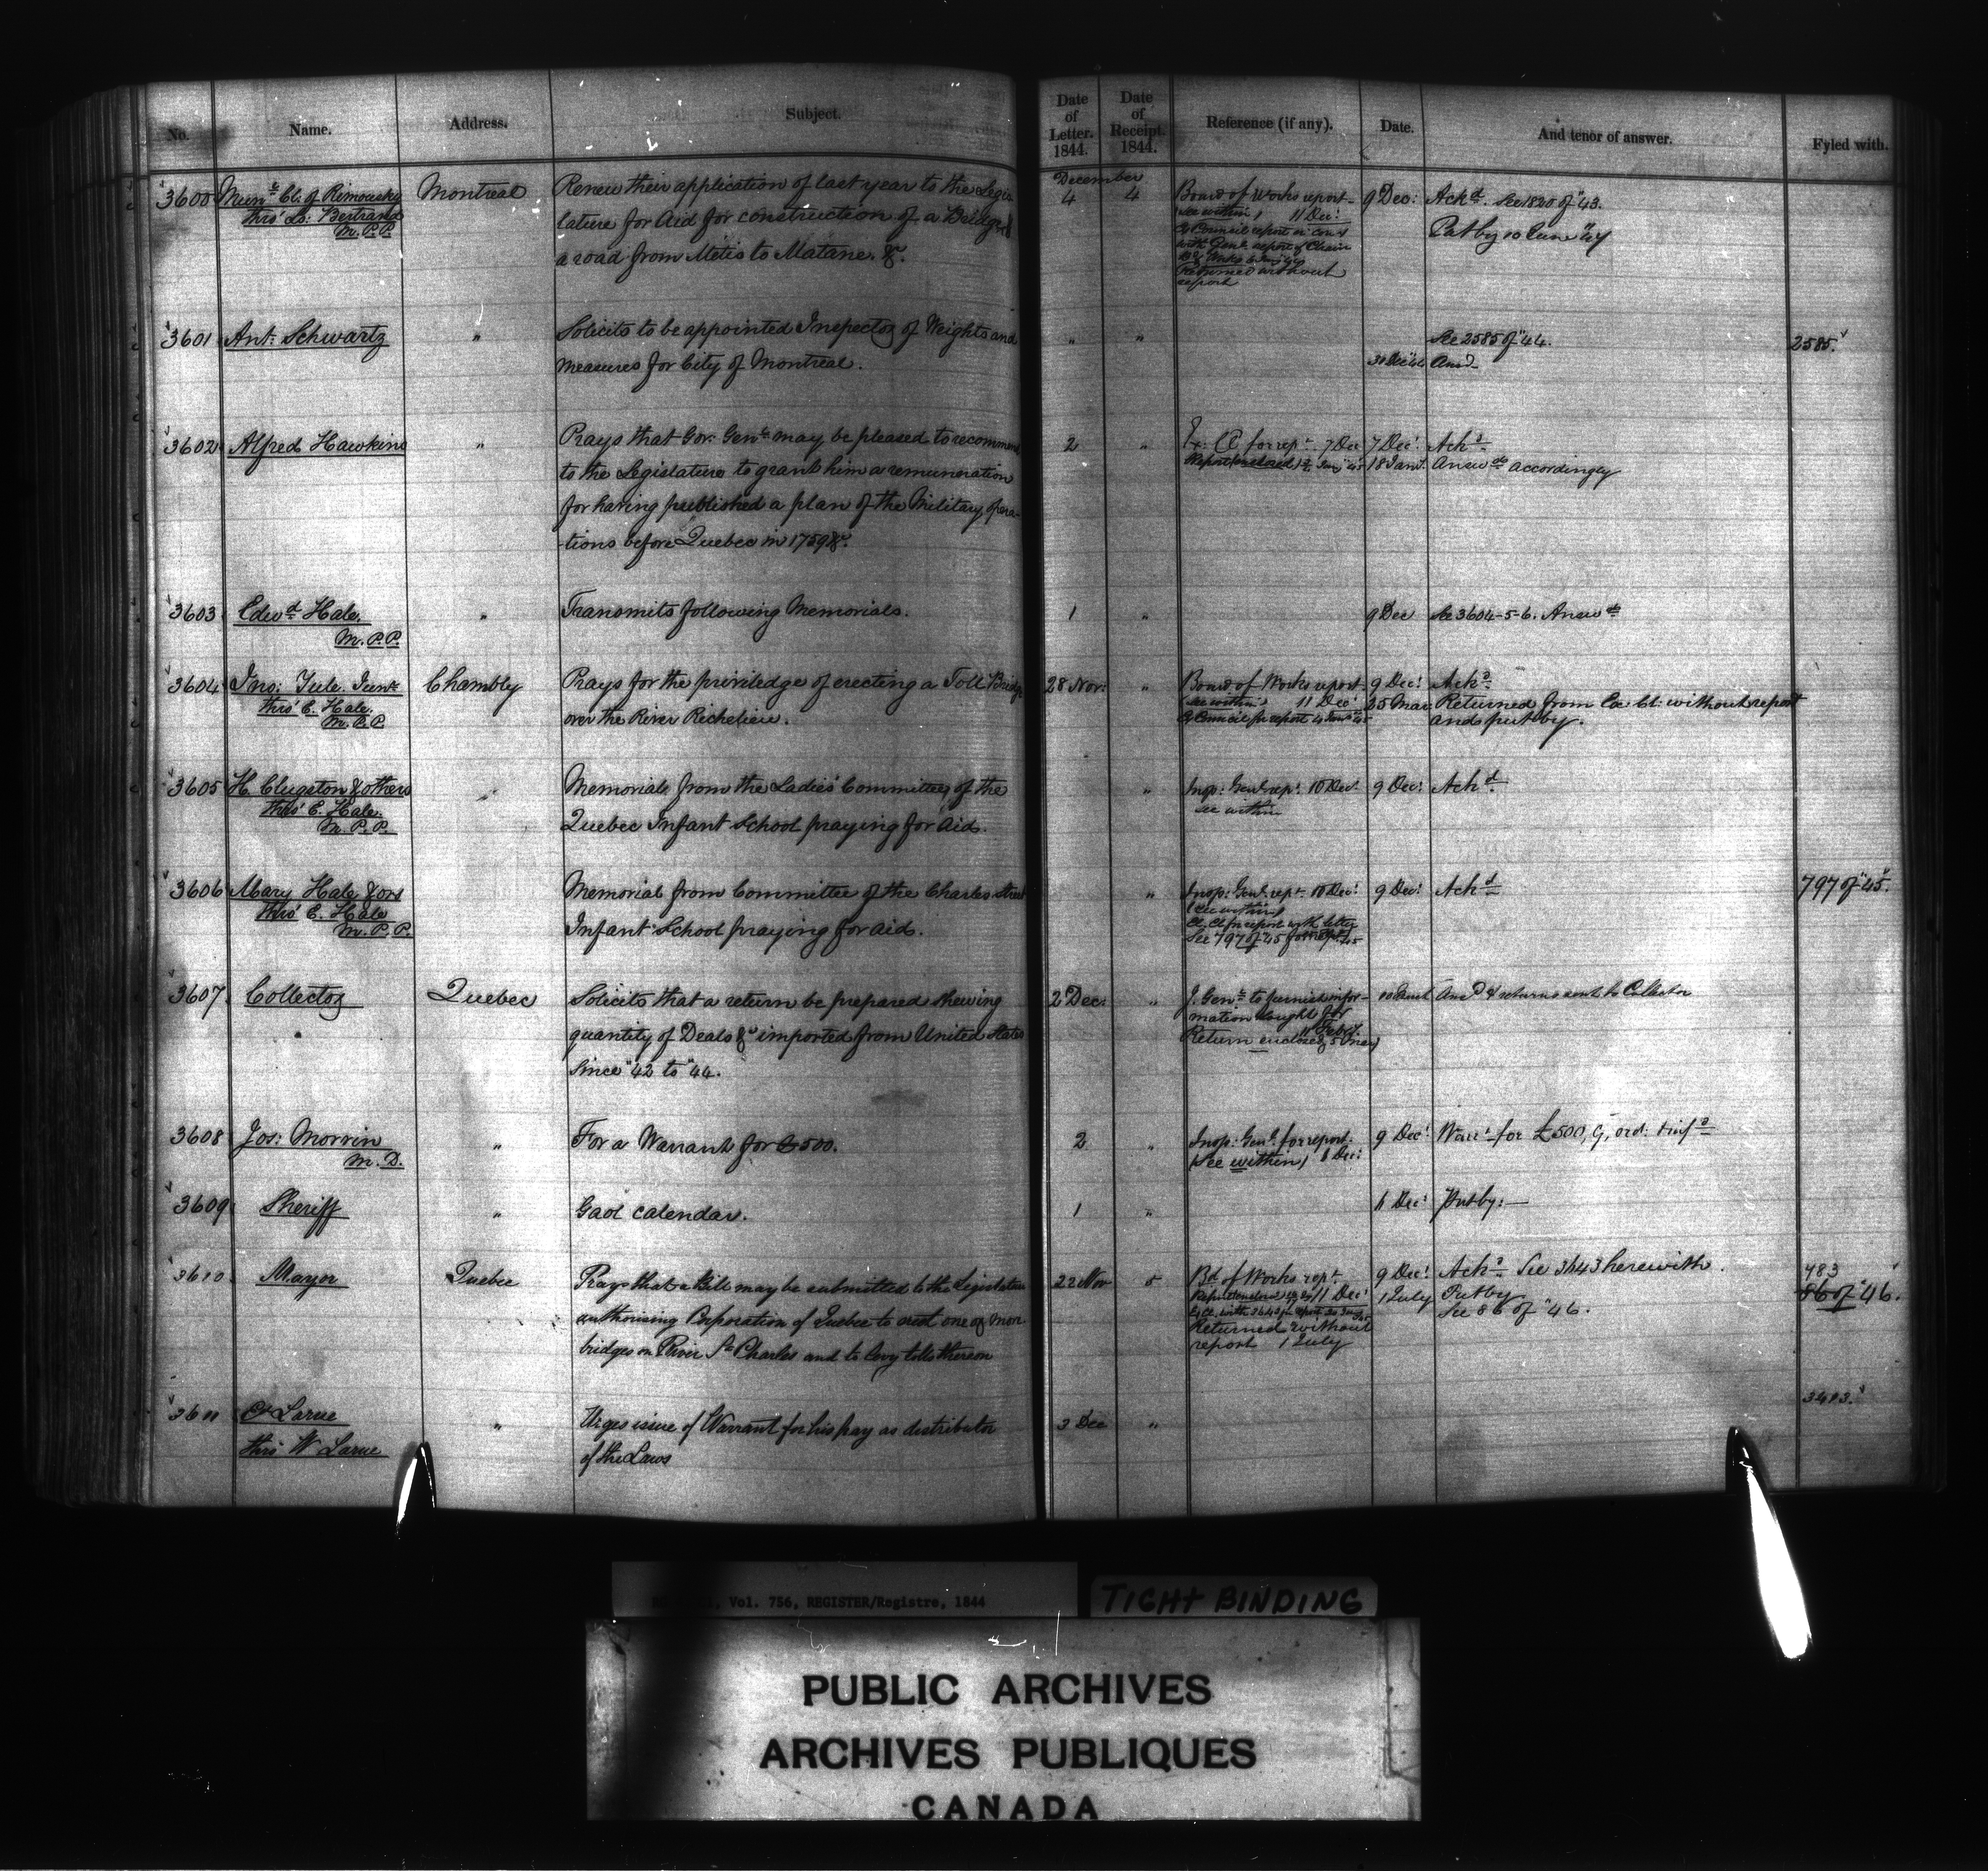 No. Name. Address. Subject. Date of Letter. 1844. Date of Receipt. 1844. Reference (if any). Date. And tenor of answer. Fyled with.
December
3600 Munl. Cl. of Rimousky Montreal Renew their application of last year to the Legis- 4 4 Board of Works report 9 Dec: Ackd. See 1820 of "43.
thro' L: Bertrand lature for Aid for construction of a Bridge & see within 11 Dec:
M.P.P. a road from Metis to Matane. &c. Put by 10 June
Returned without
report
3601 Ant: Schwartz " Solicits to be appointed Inspector of Weights and " " See 2585 of "44. 2585.
measures for City of Montreal. Ansd.
3602 Alfred Hawkins " Prays that Gov: Genl. may be pleased to recommend 2 " Ex: Cl for rept. 7 Dec 7 Dec: Ackd.
to the Legislature to grant him a remuneration 18 Jany. Answd. accordingly
for having published a plan of the Military opera-
tions before Quebec in 1759 &c.
3603 Edwd. Hale. " Transmits following Memorials. 1 " 9 Dec See 3604-5-6. Answd.
M.P.P.
3604 Jno: Yule. Junr. Chambly Prays for the priviledge of erecting a Toll Bridge 28 Nov: " Board of Works report 9 Dec: Ackd.
thro' E. Hale. over the River Richelieu. see within 11 Dec: 25 Mar: Returned from Ex: Cl: without report
M.P.P. Ex Council for report and put by.
3605 H. Clugston & others " Memorials from the Ladies' Committee of the " Insp: Genl. rept. 10 Dec: 9 Dec: Ackd.
thro' E. Hale. Quebec Infant School praying for aid. see within
M.P.P.
3606 Mary Hale & ors Memorial from Committee of the Charles Street " Insp: Genl. rept. 10 Dec: 9 Dec: Ackd. 797 of "45.
thro' E. Hale Infant School praying for aid. (see within)
M.P.P. Ex. Cl for report with letter
See 797 of "45
3607 Collector Quebec Solicits that a return be prepared shewing 2 Dec: " I. Genl. to furnish infor- Ansd. & returns sent to Collector
quantity of Deals &c imported from United States mation sought for
since "42 to "44. 11 Feby.
Return enclosed 5 Mar)
3608 Jos: Morrin " For a Warrant for £500. 2 " Insp: Genl. for report. 9 Dec: Warrt. for £500,
M.D. (See within) 8 Dec:
3609 Sheriff " Gaol calendar. 1 " 11 Dec: Put by:—
3610 Mayor Quebec Prays that a Bill may be submitted to the Legislature 22 Nov 5 Bd. of Works rept. 9 Dec: Ackd. See 3643 herewith. 483
authorising Corporation of Quebec to erect one or more 11 Dec: 1 July Put by 86 of "46.
bridges on River St. Charles and to levy tolls thereon Returned without See 86 of "46.
report 1 July
3611 Larue " Urges issue of Warrant for his pay as distributor 3 Dec " 3483.
thro' W Larue of the Laws
Vol. 756, REGISTER/Registre, 1844
TIGHT BINDING
PUBLIC ARCHIVES
ARCHIVES PUBLIQUES
CANADA